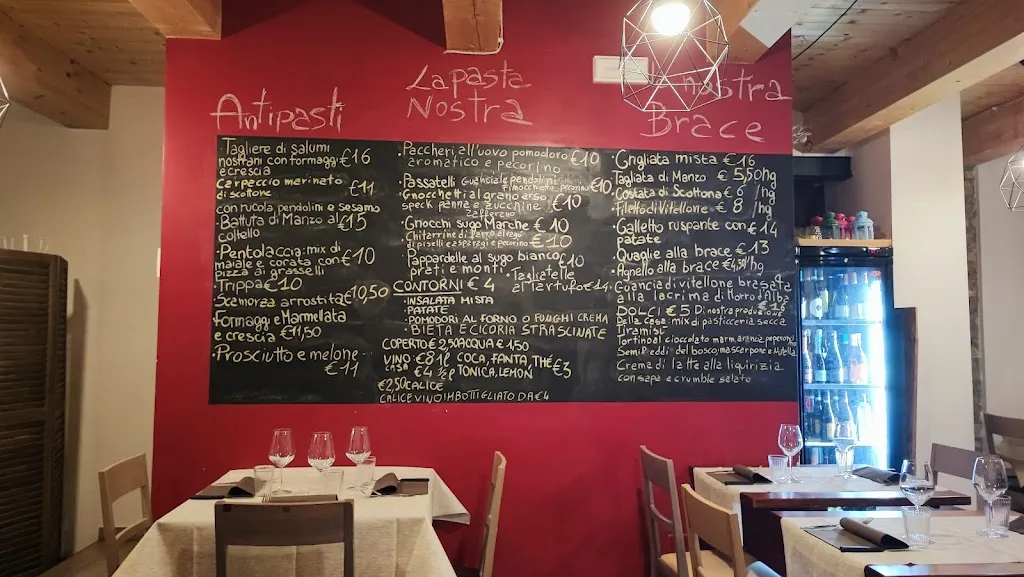 Antipasti
Tagliere di salumi
nostrani con formaggi €16
e crescia
Carpaccio marinato
di scottona €11
con rucola pendolini e sesamo
Battuta di Manzo al €15
coltello
Pentolaccia: mix di
maiale e corata con €10
pizza di grasselli
Trippa €10
Scamorza arrostita €10,50
Formaggi e Marmellata
e crescia €11,50
Prosciutto e melone
€11
La pasta
Nostra
Paccheri all'uovo pomodoro €10
aromatico e pecorino
Passatelli Guanciale pendolini
€10
Gnocchetti al grano arso
speck panna e zucchine €10
zafferano
Gnocchi sugo Marche €10
Chitarrine di farro al ragù
di piselli e asparagi e pecorino €10
Pappardelle al sugo bianco €10
prati e monti
Tagliatelle
al tartufo €14
CONTORNI € 4
INSALATA MISTA
PATATE
POMODORI AL FORNO O FUNGHI CREMA
BIETA E CICORIA STRASCINATE
COPERTO € 2,50 ACQUA € 1,50
VINO €8 1 l COCA, FANTA, THE €3
CASA €4 ½ l TONICA, LEMON
€2,50 CALICE
CALICE VINO IMBOTTIGLIATO DA €4
nostra
Brace
Grigliata mista €16
Tagliata di Manzo € 5,50 hg
Costata di Scottona € 6 /hg
Filetto di Vitellone € 8 /hg
Galletto ruspante con €14
patate
Quaglie alla brace €13
Agnello alla brace €4,50/hg
Guancia di vitellone brasata
alla lacrima di Morro d'Alba
DOLCI € 5 Di nostra produzione
Della casa: mix di pasticceria secca
Tiramisù
Tortino al cioccolato marm. arancia peperonc
Semif. freddi del bosco, mascarpone e Nutella
Crema di latte alla liquirizia
con sapa e crumble salato